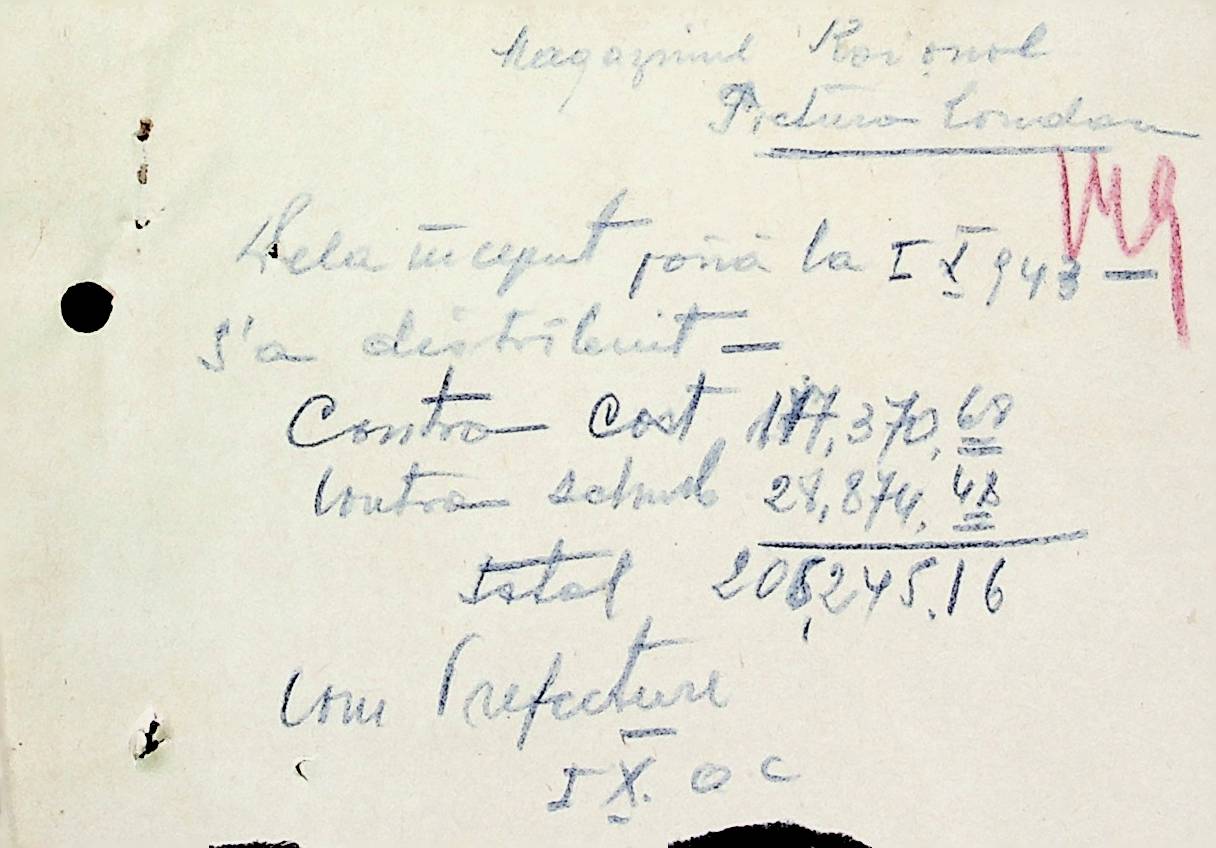 Magazinul Raional
Dela început până la I X 943 —
s'a distribuit —
Contra Cost 177,370,68
Contra schimb 28,874,48
Total 206,245.16
Com Prefecture
I X. a c